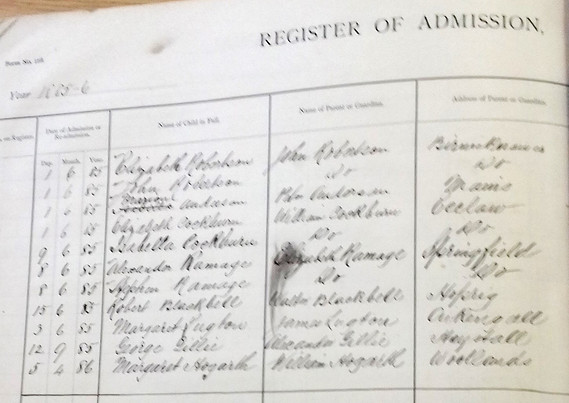 REGISTER OF ADMISSION,
Form No. 
Year 1885-6
on Register. Date of Admission or Re-admission. Name of Child in Full. Name of Parent or Guardian. Address of Parent or Guardian.
Day. Month. Year.
1 6 85 Elizabeth Robertson John Robertson
1 6 85 John Robertson Do Do
1 6 85 Anderson Anderson Mains
1 6 85 Elizabeth Cockburn William Cockburn Ecclaw
9 6 85 Isabella Cockburn Do Do
8 6 85 Alexander Ramage Elizabeth Ramage Springfield
8 6 85 Stephen Ramage Do Do
15 6 85 Robert Blackbell Walter Blackbell Hoprig
3 6 85 Margaret Lugton James Lugton
12 9 85 George Gillie Alexander Gillie
5 4 86 Margaret Hogarth William Hogarth Woollands